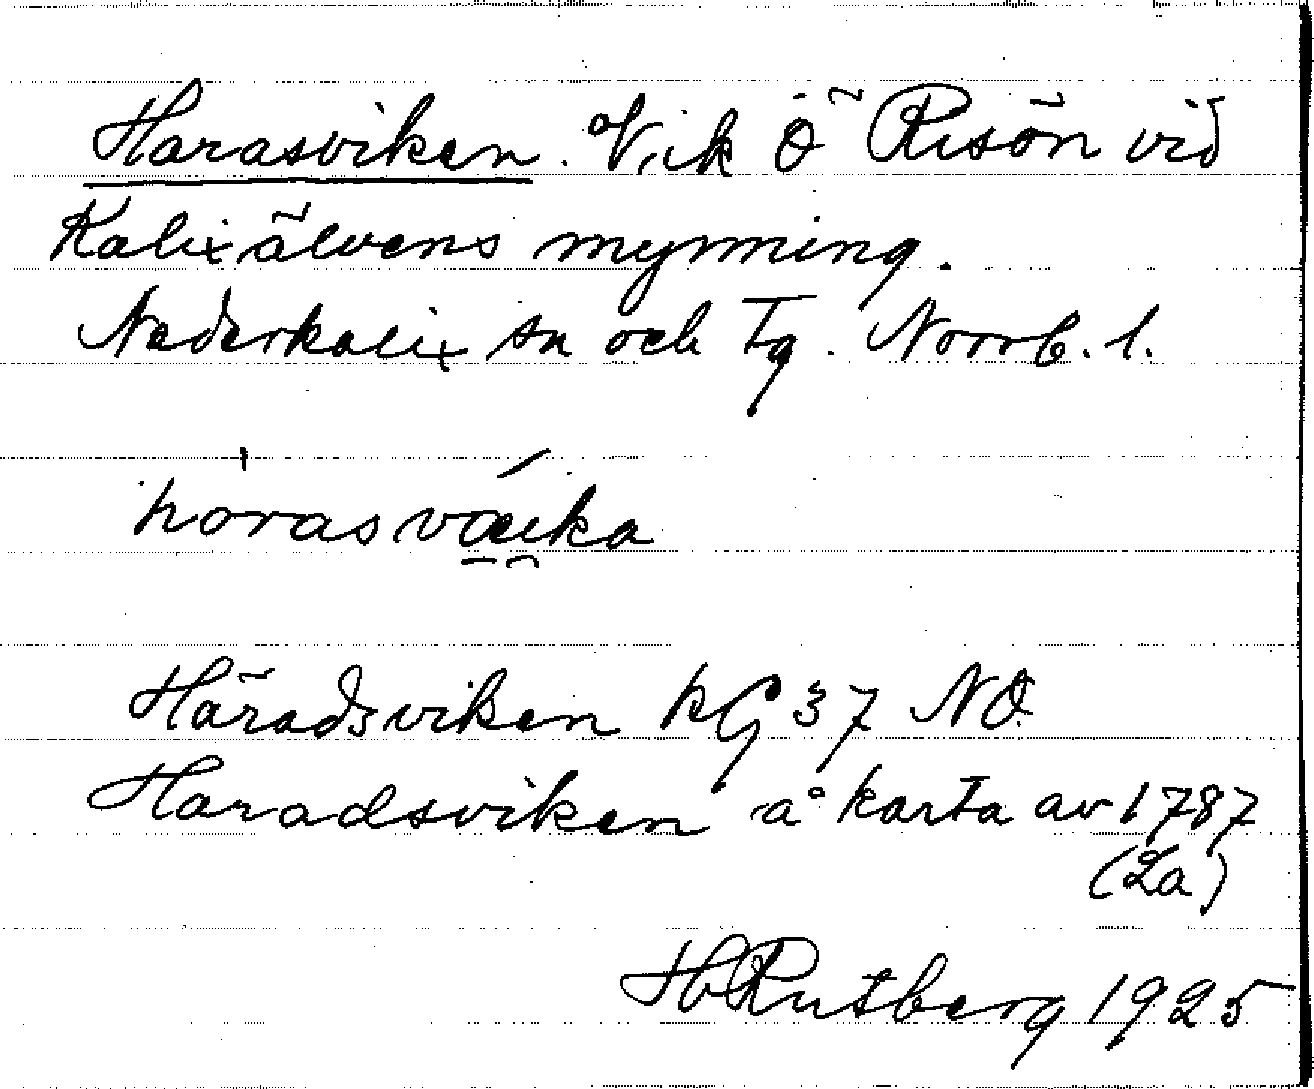 Harasviken. Vik Ö Risön vid
Kalixälvens mynning.
Nederkalix sn och tg. Norrb. l.
hórasvæika
Häradsviken kG 37 NO.
Haradsviken å karta av 1787
(La)
H Rutberg 1925